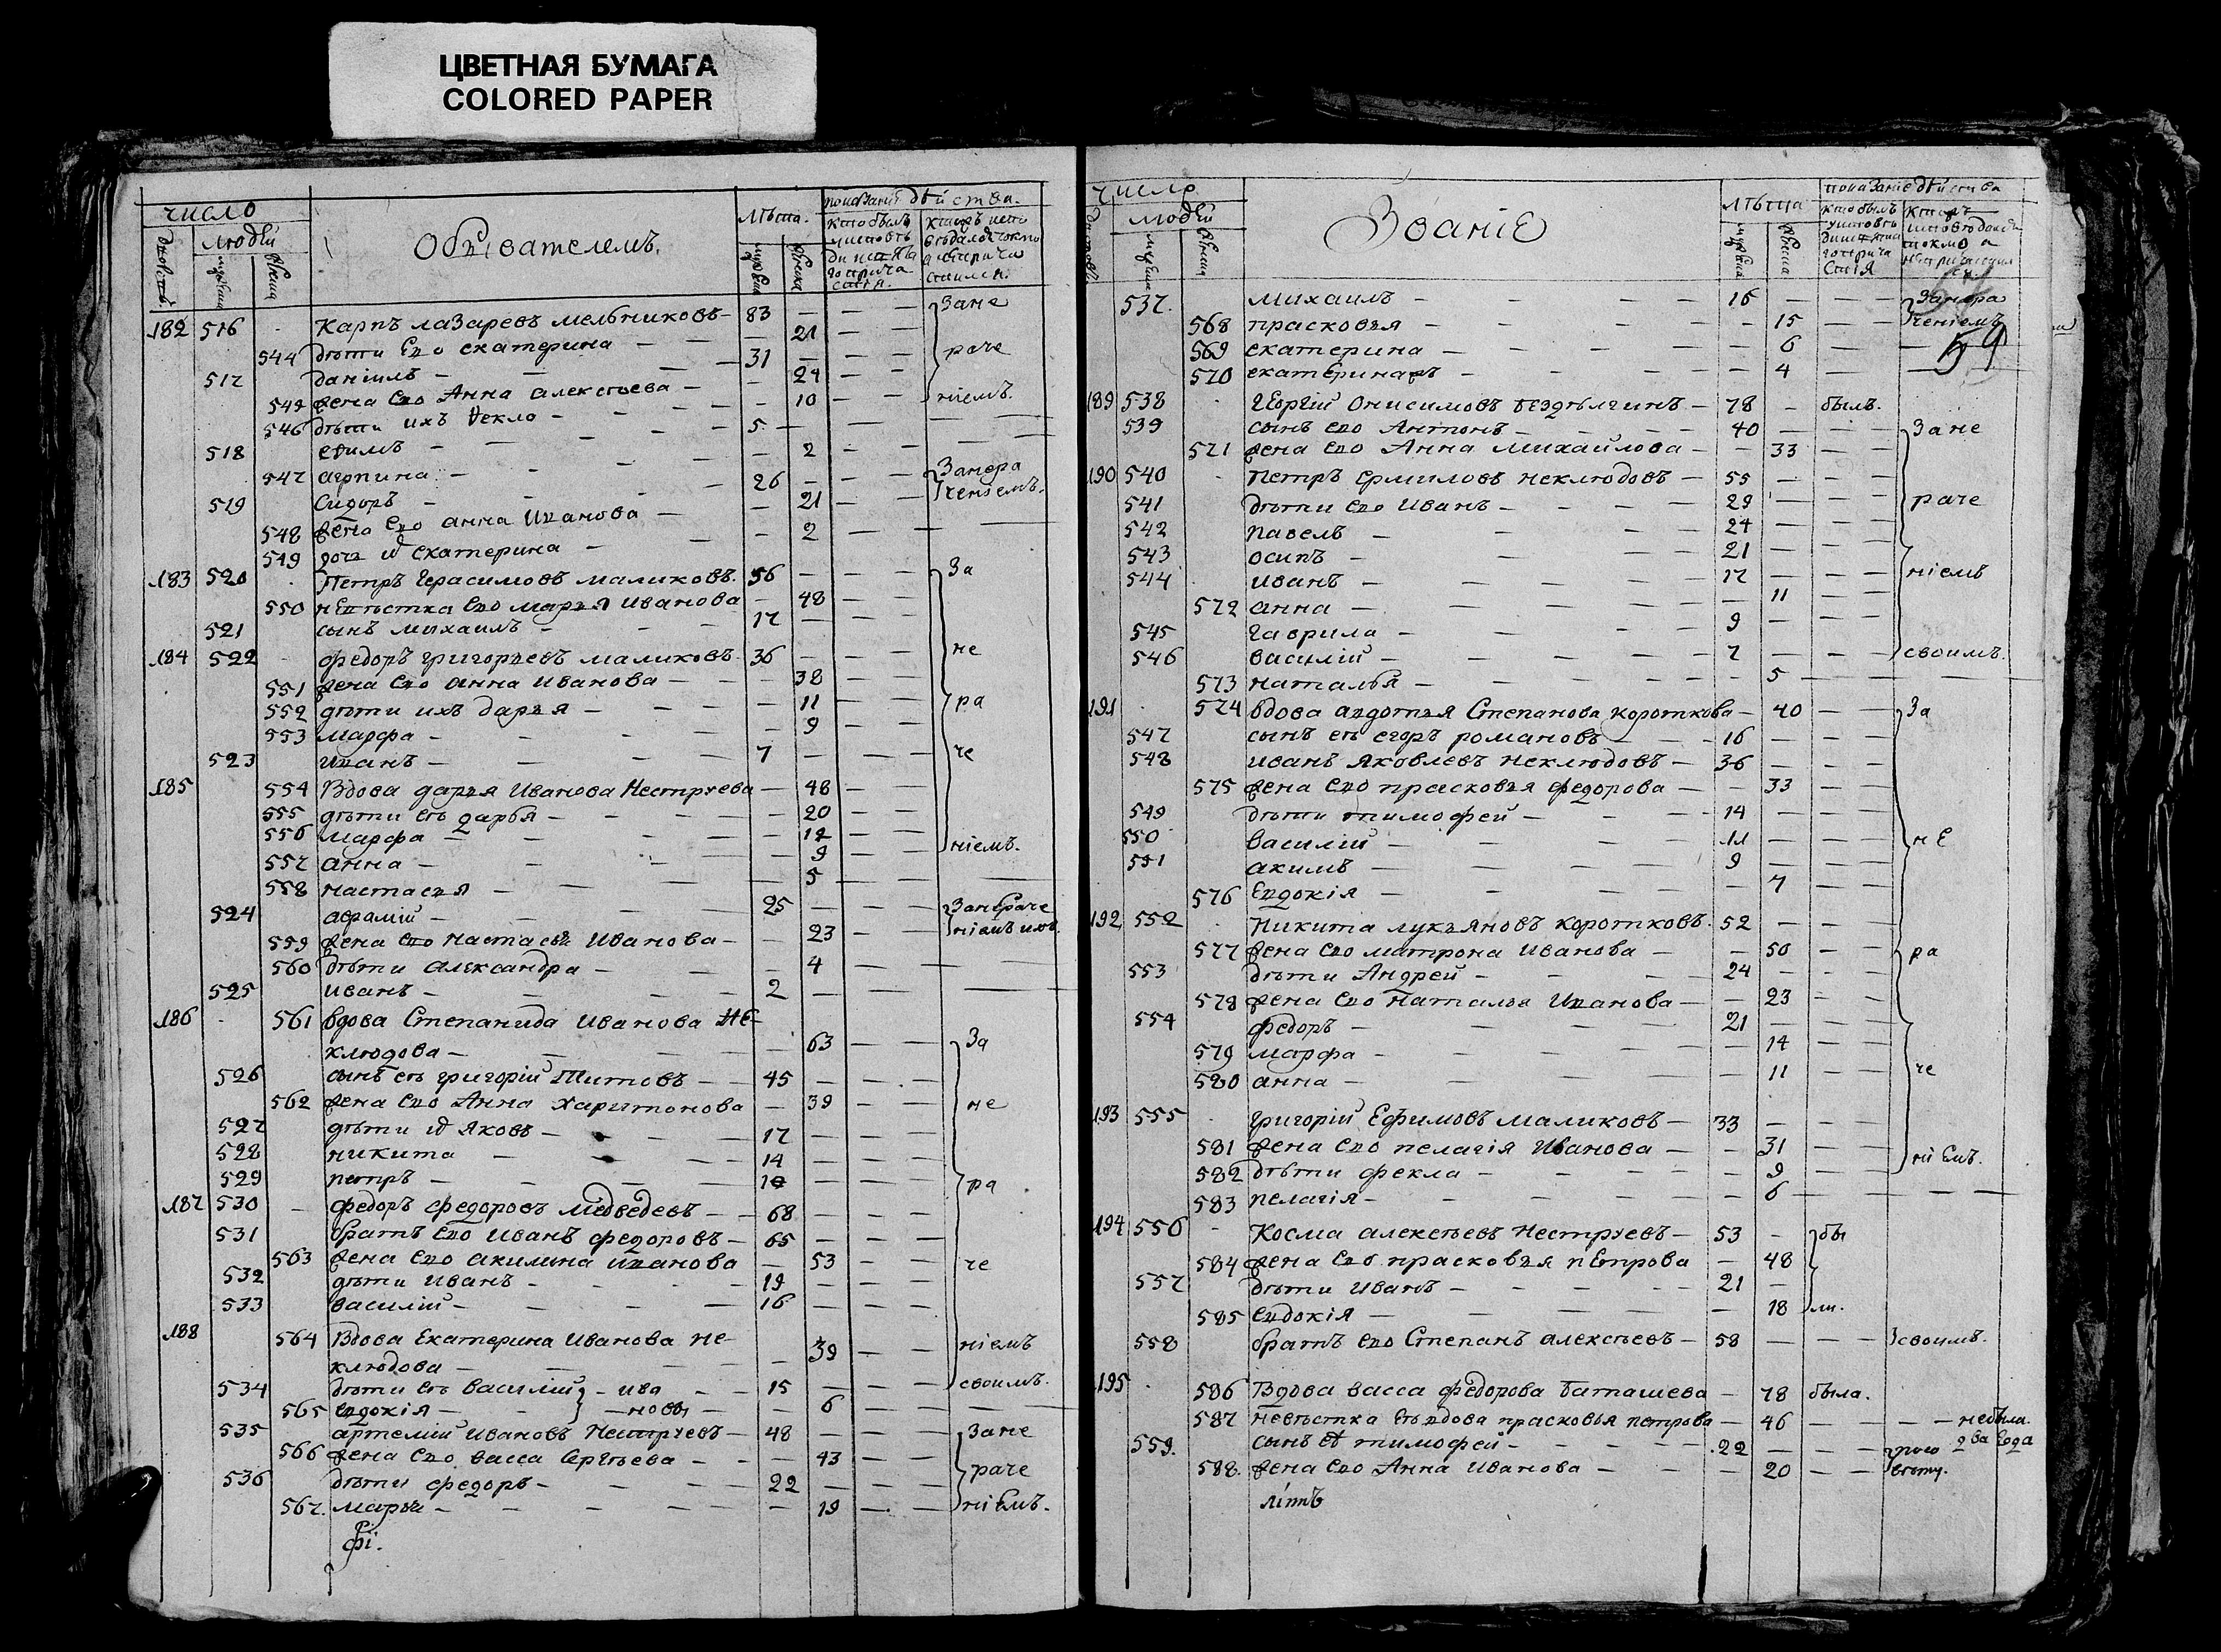 ЦВЕТНАЯ БУМАГА
COLORED PAPER
число
людей
Обꙑвателемъ.
лѣта.
показаніе дѣйства.
182 516 Карпъ лазаревъ мельниковъ 83 Зане
544 дѣти Его екатерина 21
517 даніилъ 31 раче
545 жена Его Анна алексѣева 24
546 дѣти ихъ Ѳекла 10 ніемъ.
518 евимъ 5
547 агрпина 2
519 Сидоръ 26 Занера
548 жена Его анна Иванова 21 ченіемъ.
549 дочь ихъ екатерина 2
183 520 Петръ Герасимовъ маликовъ. 56 За
550 невѣстка Его марья Иванова 48
521 сынъ михаилъ 17
184 522 федоръ григорьевъ маликовъ 36 не
551 жена Его анна иванова 38
552 дѣти ихъ дарья 11 ра
553 марфа 9
523 иванъ 7 че
185 554 Вдова дарья Иванова Нестрꙋева 48
555 дѣти еѣ дарья 20
556 марфа 12
557 анна 9 ніемъ.
558 настасья 5
524 авраміи 25 Занераче
559 жена Его Настасья Иванова 23 ніемъ
560 дѣти александра 4
525 иванъ 2
186 561 вдова Степанида Иванова Не-
клюдова 63 За
526 сынъ еѣ григоріи Титовъ 45
562 жена Его Анна Харитонова 39 не
527 дѣти ихъ яковъ 17
528 никита 14
529 петръ 10 ра
187 530 федоръ федоровъ медведевъ 68
531 братъ Его Иванъ федоровъ 65
563 жена Его акилина иванова 53 че
532 дѣти Иванъ 19
533 василіи 16
188 564 Вдова Екатерина Иванова Не- ніемъ
клюдова 39
534 дѣти еѣ василіи - ива 15 своимъ.
565 Евдокія - новы 6
535 артеміи Ивановъ Нестрꙋевъ 48 Зане
566 жена Его васса Сергѣева 43 раче
536 дѣти федоръ 22
567. марья 19 ніемъ.
число
людей
Званіе
лѣта
показаніе дѣйства
59
537. михаилъ 16 Занера
568 прасковья 15 ченіемъ
569 екатерина 6
570 екатерина 4
189 538 Георгіи Онисимовъ бездѣлгинъ 78 былъ.
539 сынъ Его Антонъ 40 Зане
571 жена Его Анна михаилова 33
190 540 Петръ Ермиловъ неклюдовъ 55
541 дѣти Его Иванъ 29 раче
542 павелъ 24
543 осипъ 21
544 иванъ 17 ніемъ
572 анна 11
545 гаврила 9
546 василіи 7 своимъ.
573 наталья 5
191 574 вдова авдотья Степанова короткова 40 За
547 сынъ еѣ егоръ романовъ 16
548 иванъ яковлевъ неклюдовъ 36
575 жена Его прасковья федорова 33
549 дѣти тимофеи 14
550 василіи 11 не
551 акимъ 9
576 Евдокія 7
192 552 Никита лукьяновъ коротковъ. 52
577 жена Его матрона Иванова 50 ра
553 дѣти Андреи 24
578 жена Его Наталья Иванова 23
554 федоръ 21
579 марфа 14
580 анна 11 че
193 555 григоріи Ефимовъ маликовъ 33
581 жена Его пелагія Иванова 31
582 дѣти фекла 9 ніемъ.
583 пелагія 6
194 556 Косма алексѣевъ Нестрꙋевъ 53 бы
584 жена Его прасковья петрова 48
557 дѣти Иванъ 21
585 Евдокія 18 ли.
558 братъ Его Степанъ алексѣевъ 58 своимъ.
195 586 Вдова васса федорова баташева 78 была.
587 невѣстка еѣ вдова прасковья петрова 46 небыла.
559. сынъ еѣ тимофеи 22 два года
588. жена Его Анна Иванова 20